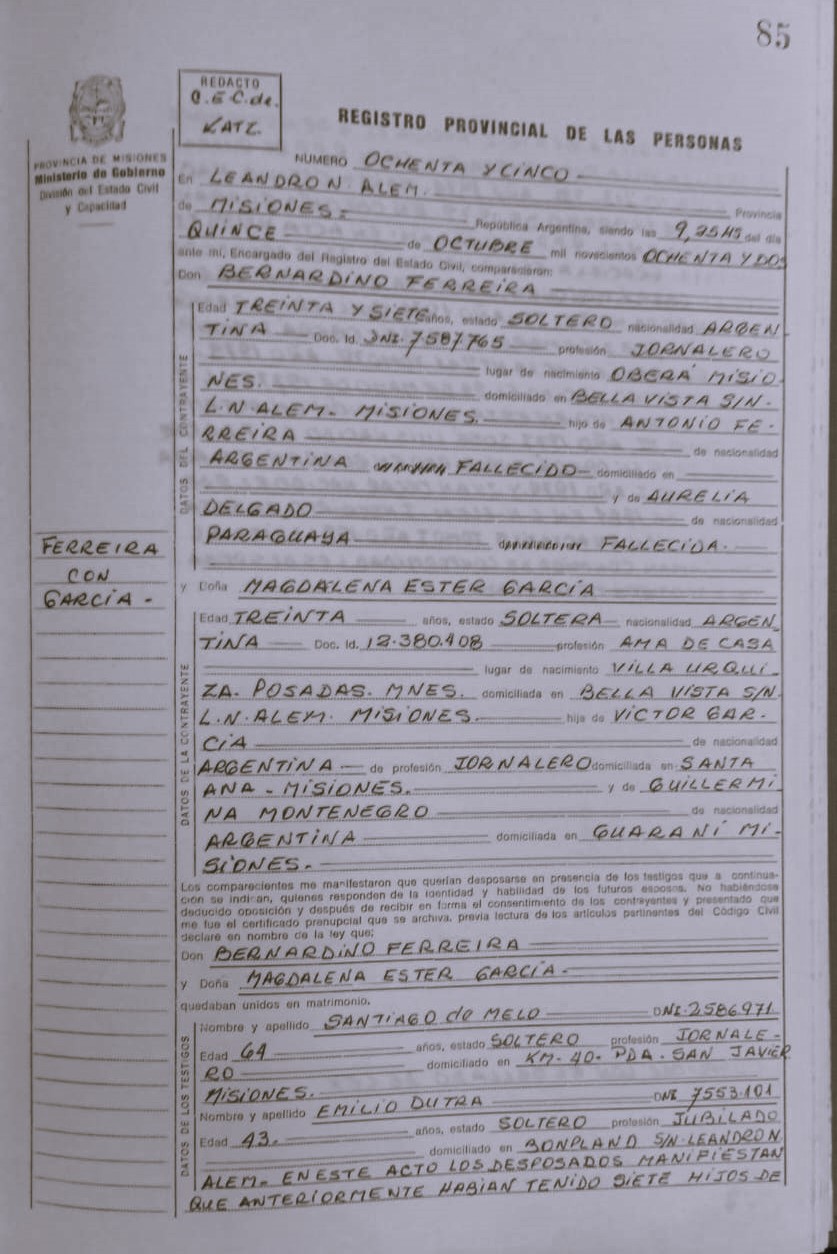 85
REDACTO
O.E.C.de.
KATZ.
PROVINCIA DE MISIONES
Ministerio de Gobierno
División del Estado Civil
y Capacidad
REGISTRO PROVINCIAL DE LAS PERSONAS
NUMERO OCHENTA Y CINCO
En LEANDRO N. ALEM. Provincia
de MISIONES.- República Argentina, siendo las 9,25 HS del día
QUINCE de OCTUBRE mil novecientos OCHENTA Y DOS
ante mí, Encargado del Registro del Estado Civil, comparecieron:
Don BERNARDINO FERREIRA
DATOS DEL CONTRAYENTE
Edad TREINTA Y SIETE años, estado SOLTERO nacionalidad ARGEN
TINA Doc. Id. DNI. 7.587.765 profesión JORNALERO
lugar de nacimiento OBERA MISIO-
NES. domiciliado en BELLA VISTA S/N-
L.N. ALEM- MISIONES. hijo de ANTONIO FE-
RREIRA de nacionalidad
ARGENTINA FALLECIDO domiciliado en
y de AURELIA
DELGADO de nacionalidad
PARAGUAYA FALLECIDA.
FERREIRA
CON
GARCIA -
y Doña MAGDALENA ESTER GARCIA
DATOS DE LA CONTRAYENTE
Edad TREINTA años, estado SOLTERA nacionalidad ARGEN
TINA Doc. Id. 12.380.408 profesión AMA DE CASA
lugar de nacimiento VILLA URQUI-
ZA. POSADAS. MNES. domiciliada en BELLA VISTA S/N.
L.N. ALEM. MISIONES. hija de VICTOR GAR-
CIA de nacionalidad
ARGENTINA de profesión JORNALERO domiciliada en SANTA
ANA - MISIONES. y de GUILLERMI
NA MONTENEGRO de nacionalidad
ARGENTINA domiciliada en GUARANI MI-
SIONES.-
Los comparecientes me manifestaron que querían desposarse en presencia de los testigos que a continua-
ción se indican, quienes responden de la identidad y habilidad de los futuros esposos. No habiéndose
deducido oposición y después de recibir en forma el consentimiento de los contrayentes y presentado que
me fue el certificado prenupcial que se archiva, previa lectura de los artículos pertinentes del Código Civil
declaré en nombre de la ley que:
Don BERNARDINO FERREIRA
y Doña MAGDALENA ESTER GARCIA-
quedaban unidos en matrimonio.
DATOS DE LOS TESTIGOS
Nombre y apellido SANTIAGO de MELO DNI. 2.586.971
Edad 64 años, estado SOLTERO profesión JORNALE-
RO domiciliado en KM-40- PDA- SAN JAVIER
MISIONES.
Nombre y apellido EMILIO DUTRA DNI 7553.101
Edad 43. años, estado SOLTERO profesión JUBILADO
domiciliado en BONPLAND S/N-LEANDRO N.
ALEM- EN ESTE ACTO LOS DESPOSADOS MANIFIESTAN
QUE ANTERIORMENTE HABIAN TENIDO SIETE HIJOS DE